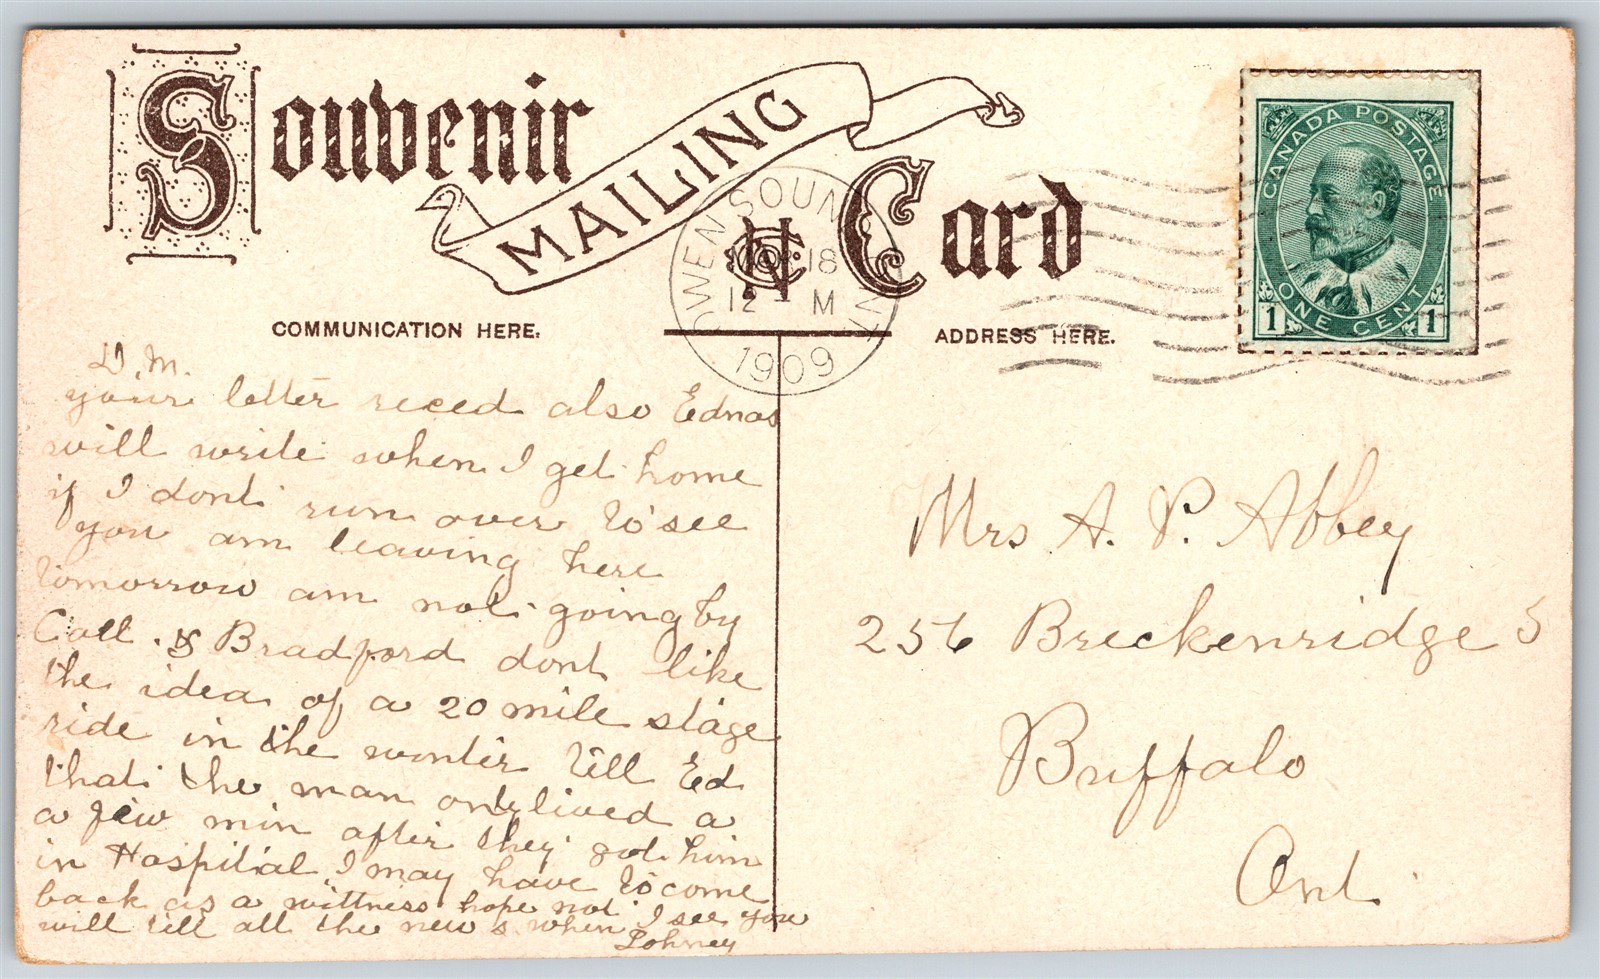 Souvenir
MAILING
Card
OWEN SOUND
18
12 M
1909
CANADA POSTAGE
ONE CENT
1 1
COMMUNICATION HERE.
ADDRESS HERE.
D. M.
your letter reced also Ednas
will write when I get home
if I dont run over to see
you am leaving here
tomorrow am not going by
Coll. & Bradford dont like
the idea of a 20 mile stage
ride in the wonter till Ed
that the man only lived a
a few min after they got him
in Hospital I may have to come
back as a wittness hope not I see you
will till all the news when
Johney
Mrs A. P. Abbey
256 Breckenridge S
Buffalo
Ont.